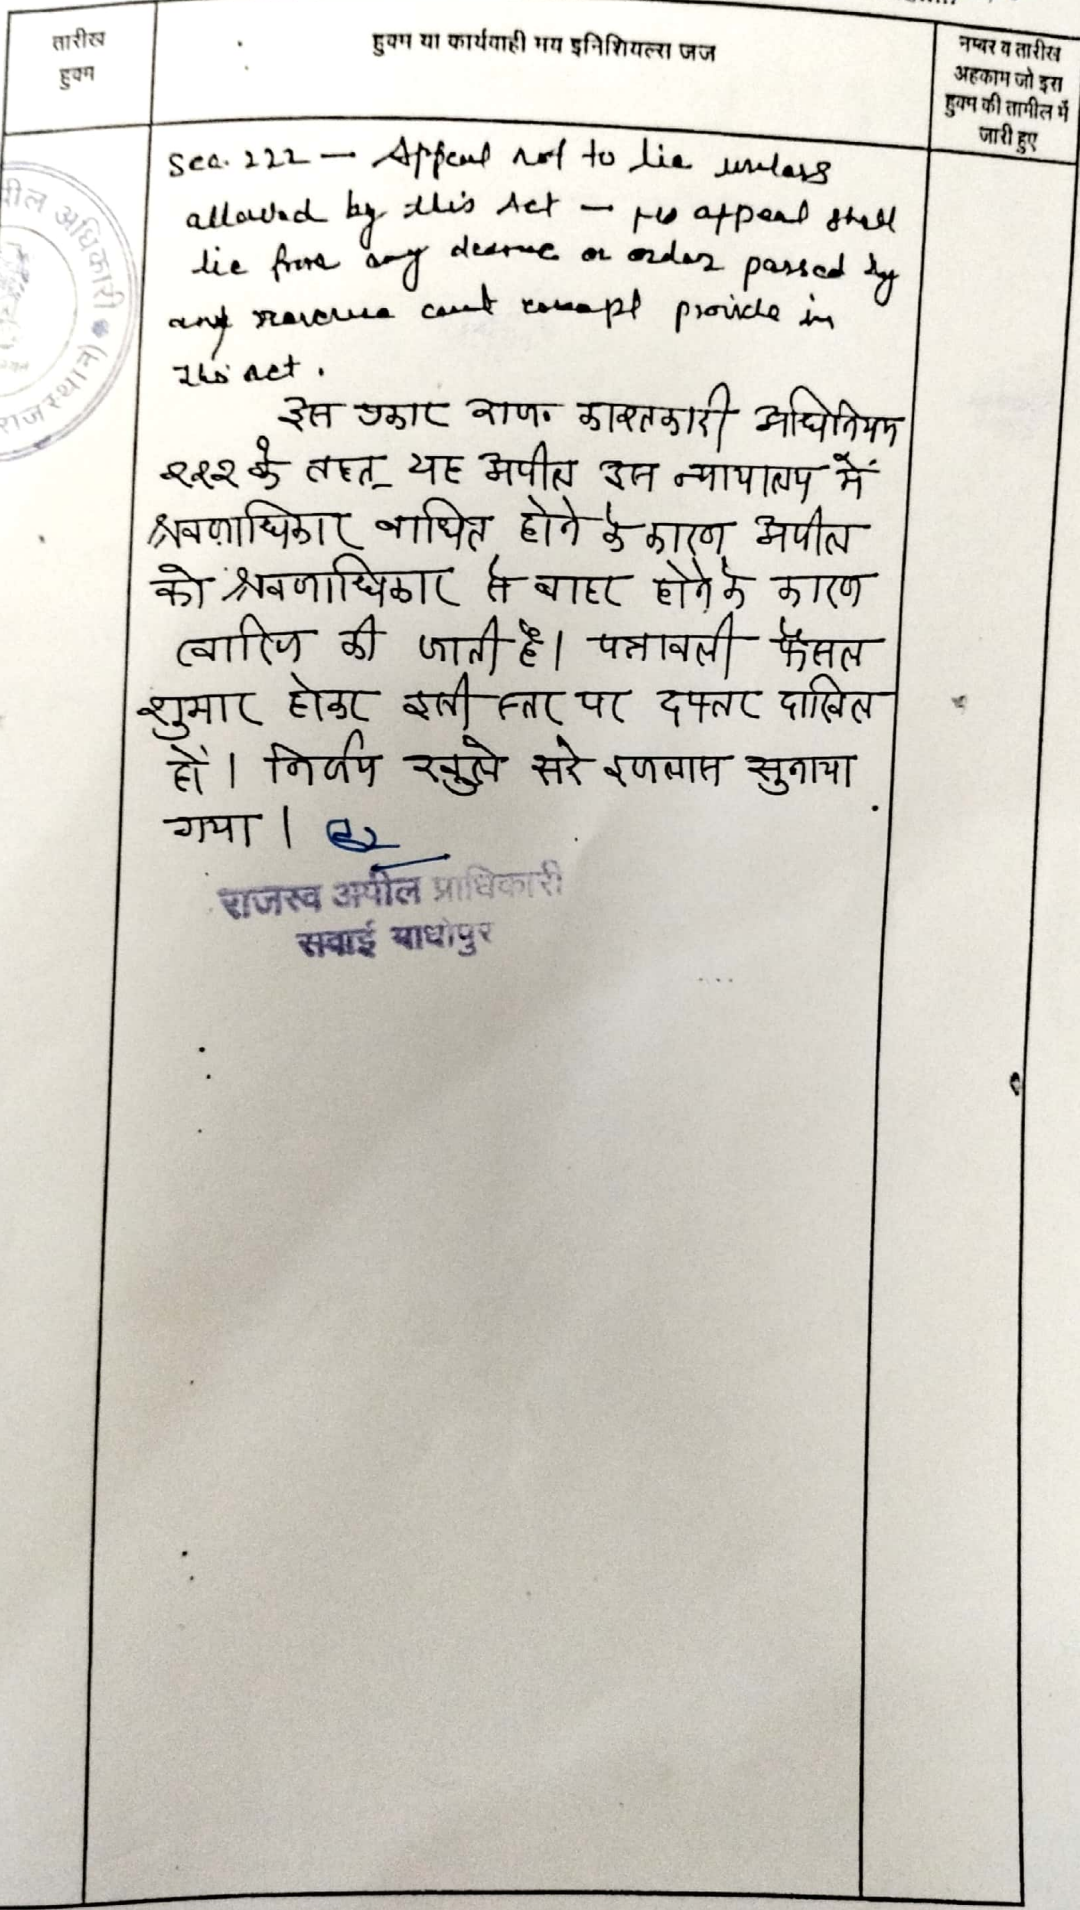 तारीख
हुक्म
हुक्म या कार्यवाही मय इनिशियल्स जज
नम्बर व तारीख
अहकाम जो इस
हुक्म की तामील में
जारी हुए
Sec. 222 — Appeal not to lie unless
allowed by this Act — No appeal shall
lie from any decree or order passed by
any revenue court except provide in
this act.
इस प्रकार राज. काश्तकारी अधिनियम
२२२ के तहत् यह अपील इस न्यायालय में
श्रवणाधिकार बाधित होने के कारण अपील
को श्रवणाधिकार से बाहर होने के कारण
खारिज की जाती है। पत्रावली फैसल
शुमार होकर इसी स्तर पर दफ्तर दाखिल
हों। निर्णय खुले सरे इजलास सुनाया
गया।
राजस्व अपील प्राधिकारी
सवाई माधोपुर
पील अधिकारी
राजस्थान)